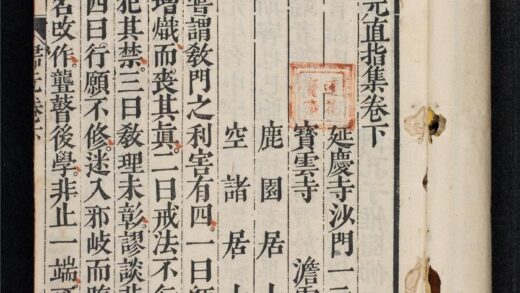 元直指集卷下
延慶寺沙門一
寶雲寺　澹
鹿園居
空諸居
謂敎門之利害有四一曰
增戲而喪其眞二曰戒法不
犯其禁三曰敎理未彰謬談
四曰行願不修迷入邪岐而
名改作聾瞽後學非止一端
元卷下